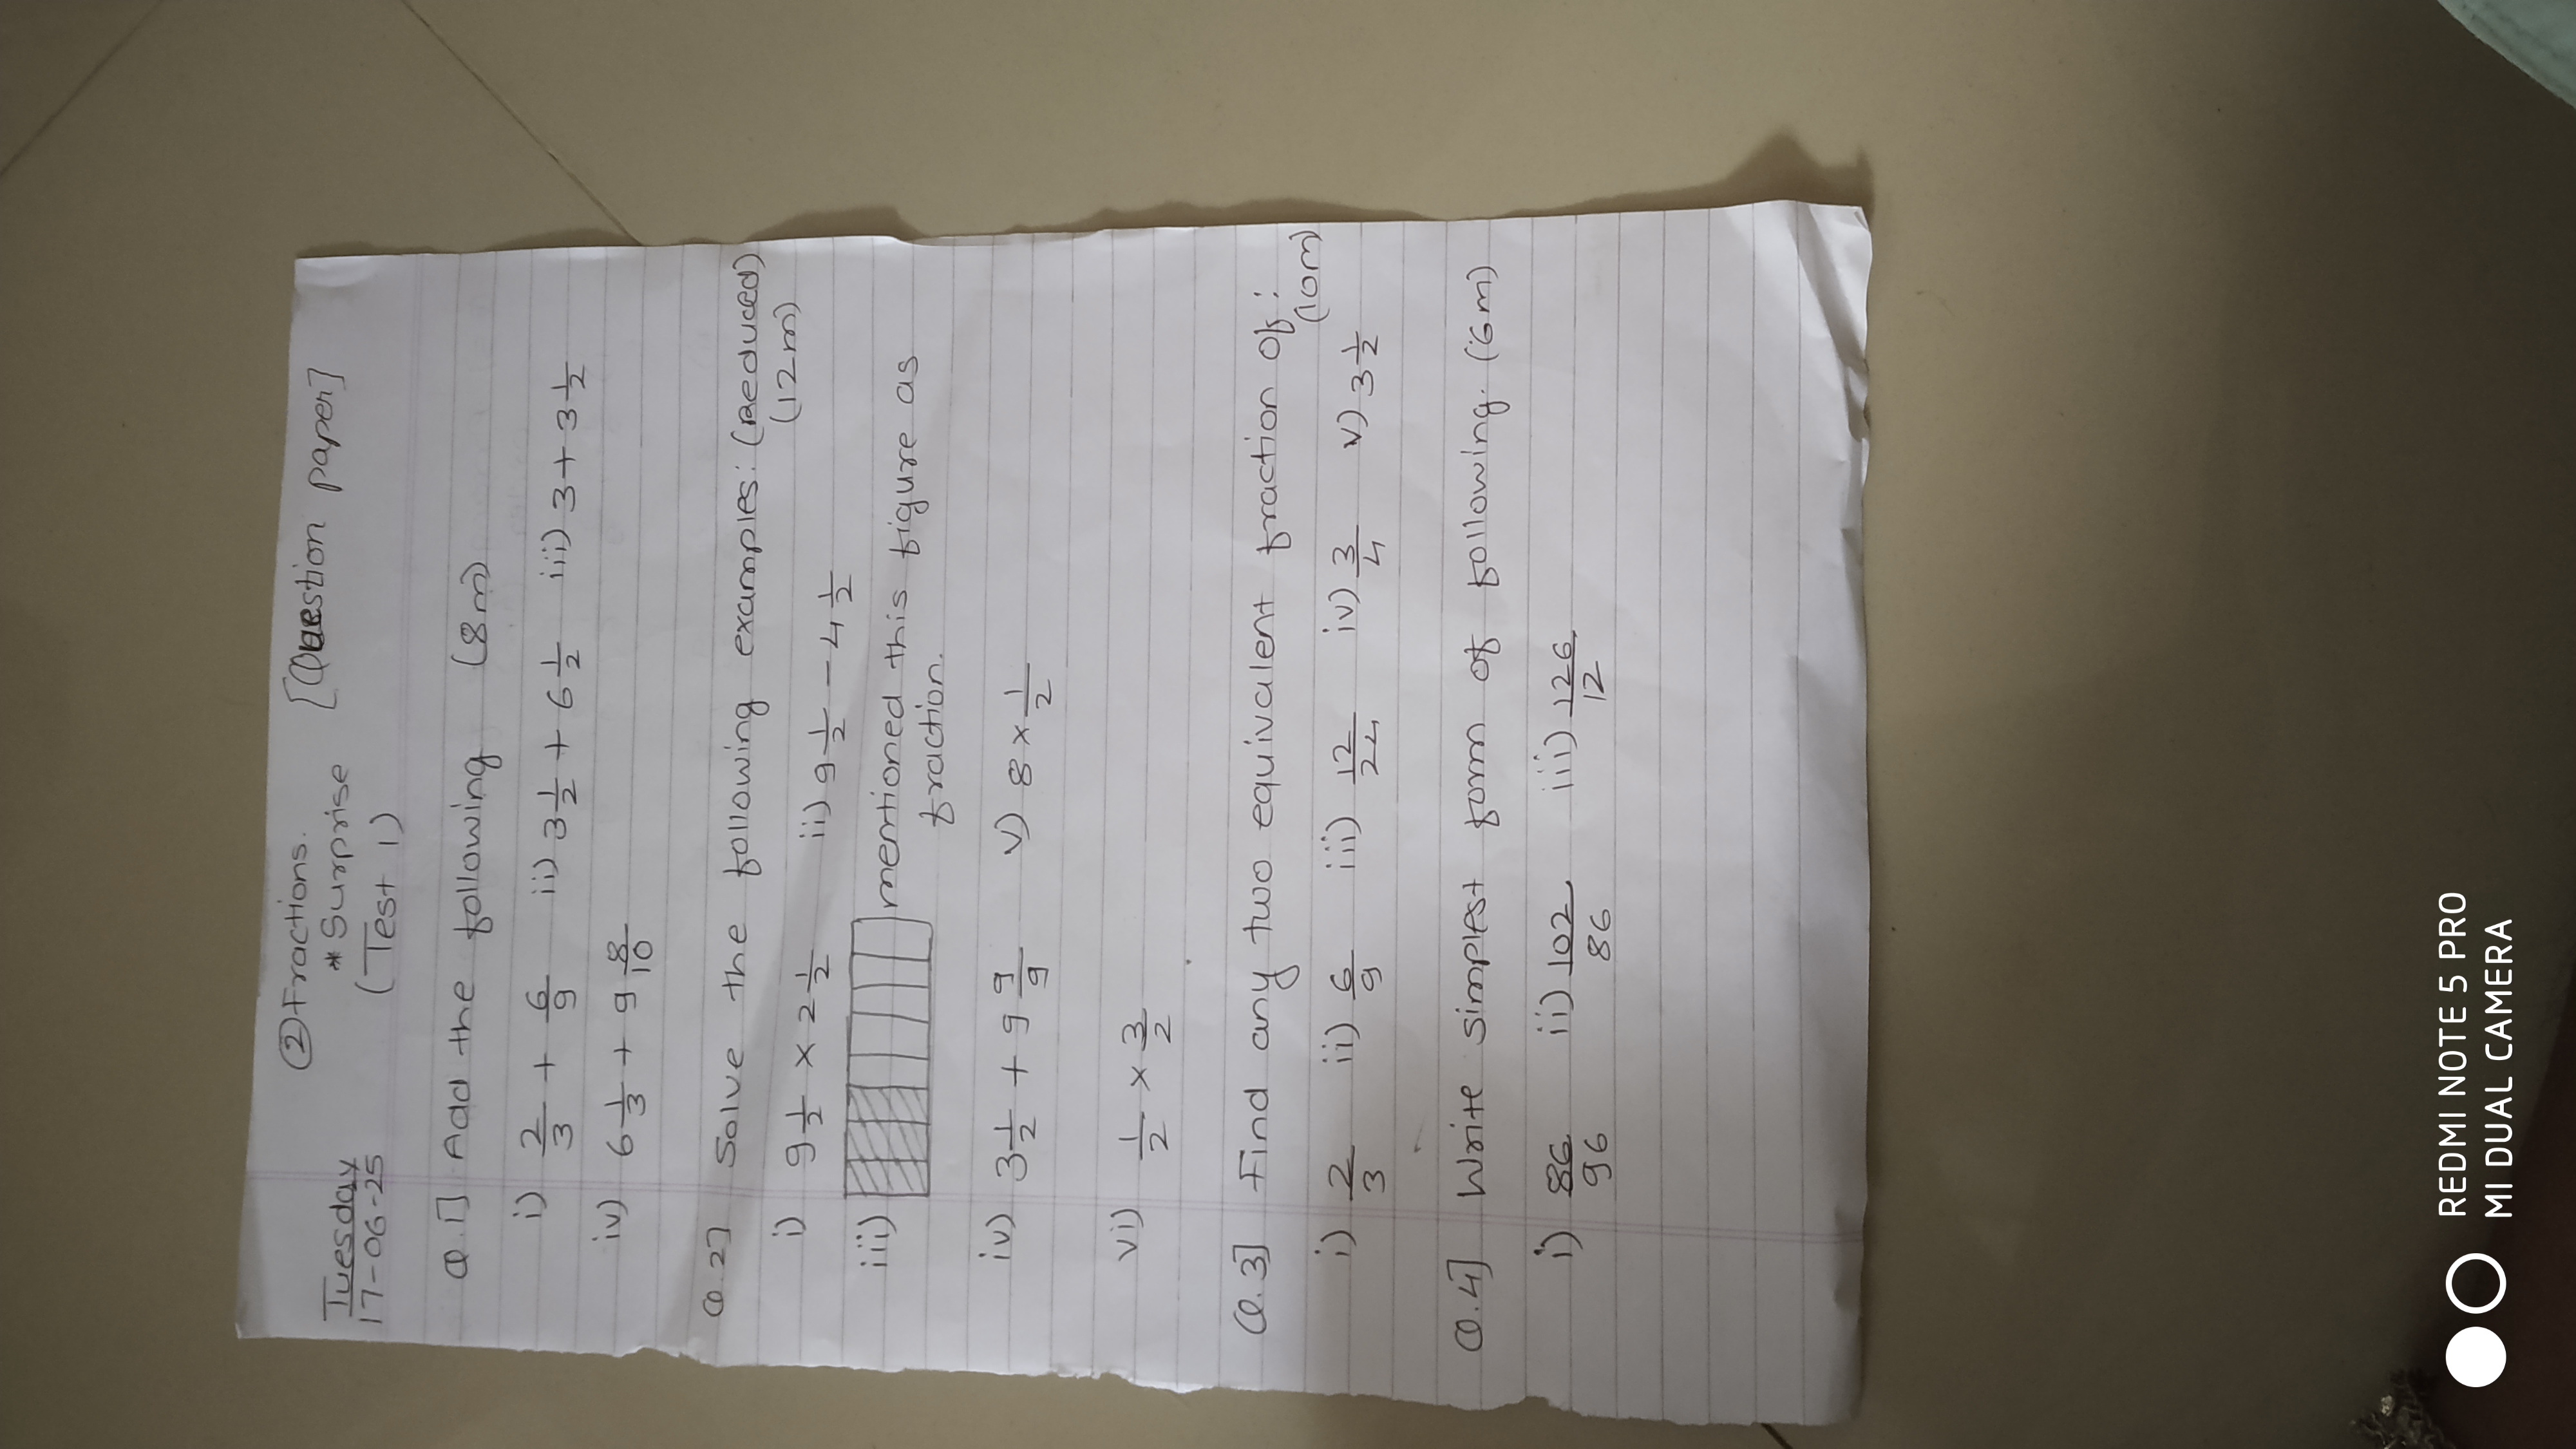 ② Fractions.
Tuesday * Surprise [Question paper]
17-06-25 (Test 1)
Q.1] Add the following (8m)
i) 2/3 + 6/9 ii) 3 1/2 + 6 1/2 iii) 3 + 3 1/2
iv) 6 1/3 + 9 8/10
Q.2] Solve the following examples: (reduced)
(12m)
i) 9 1/2 × 2 1/2 ii) 9 1/2 - 4 1/2
iii) mentioned this figure as
fraction.
iv) 3 1/2 + 9 9/9 v) 8 × 1/2
vi) 1/2 × 3/2
Q.3] Find any two equivalent fraction of:
(10m)
i) 2/3 ii) 6/9 iii) 12/24 iv) 3/4 v) 3 1/2
Q.4] Write simplest form of following. (6m)
i) 86/96 ii) 102/86 iii) 126/12
REDMI NOTE 5 PRO
MI DUAL CAMERA